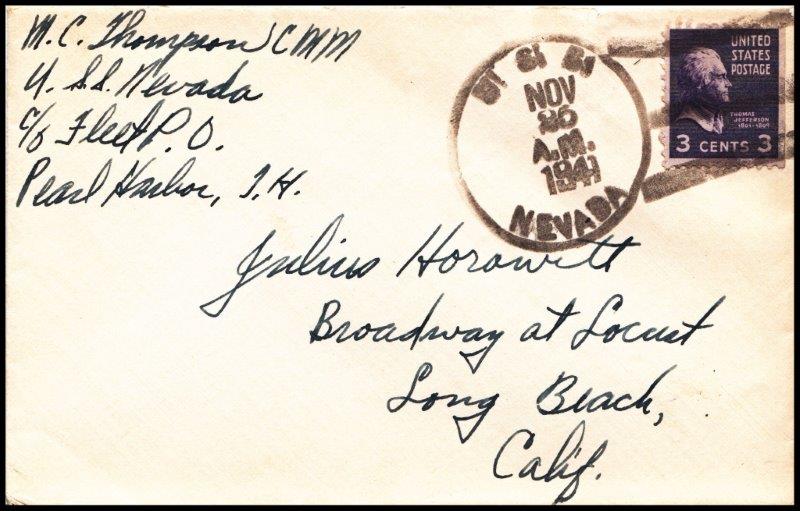 M. C. Thompson CMM
U. S. S. Nevada
c/o Fleet P. O.
Pearl Harbor, T. H.
U. S. S.
NOV
26
A.M.
1941
NEVADA
UNITED
STATES
POSTAGE
THOMAS
JEFFERSON
1801-1809
3 CENTS 3
Julius Horowitt
Broadway at Locust
Long Beach,
Calif.